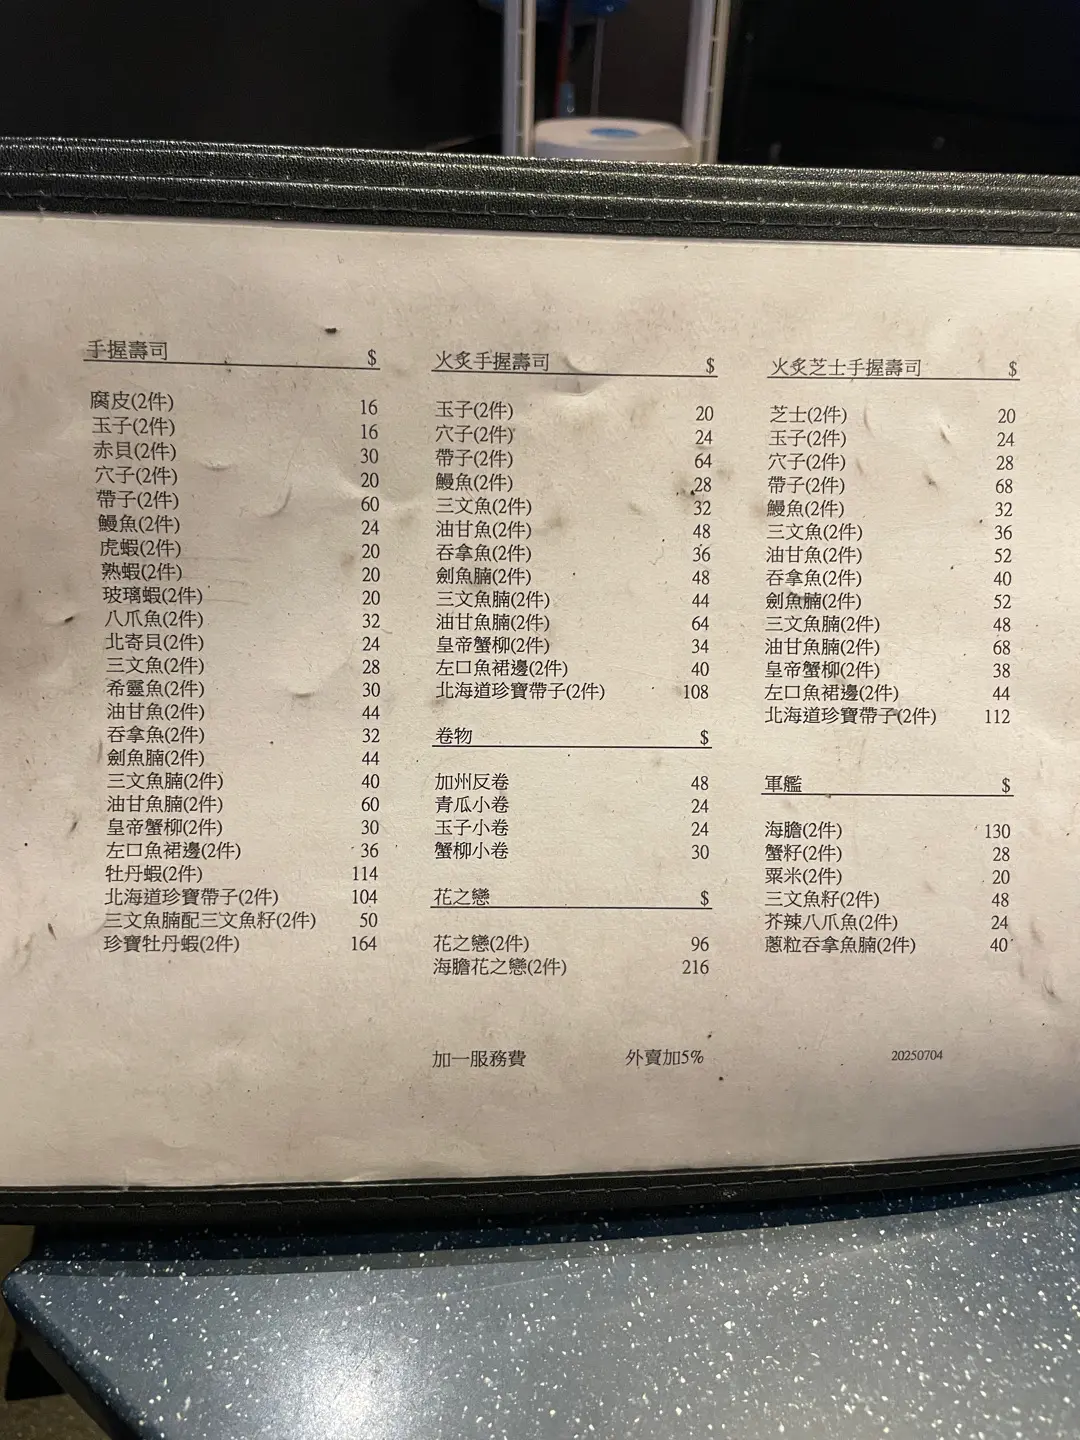 手握壽司 $
腐皮(2件) 16
玉子(2件) 16
赤貝(2件) 30
穴子(2件) 20
帶子(2件) 60
鰻魚(2件) 24
虎蝦(2件) 20
熟蝦(2件) 20
玻璃蝦(2件) 20
八爪魚(2件) 32
北寄貝(2件) 24
三文魚(2件) 28
希靈魚(2件) 30
油甘魚(2件) 44
吞拿魚(2件) 32
劍魚腩(2件) 44
三文魚腩(2件) 40
油甘魚腩(2件) 60
皇帝蟹柳(2件) 30
左口魚裙邊(2件) 36
牡丹蝦(2件) 114
北海道珍寶帶子(2件) 104
三文魚腩配三文魚籽(2件) 50
珍寶牡丹蝦(2件) 164
火炙手握壽司 $
玉子(2件) 20
穴子(2件) 24
帶子(2件) 64
鰻魚(2件) 28
三文魚(2件) 32
油甘魚(2件) 48
吞拿魚(2件) 36
劍魚腩(2件) 48
三文魚腩(2件) 44
油甘魚腩(2件) 64
皇帝蟹柳(2件) 34
左口魚裙邊(2件) 40
北海道珍寶帶子(2件) 108
卷物 $
加州反卷 48
青瓜小卷 24
玉子小卷 24
蟹柳小卷 30
花之戀 $
花之戀(2件) 96
海膽花之戀(2件) 216
火炙芝士手握壽司 $
芝士(2件) 20
玉子(2件) 24
穴子(2件) 28
帶子(2件) 68
鰻魚(2件) 32
三文魚(2件) 36
油甘魚(2件) 52
吞拿魚(2件) 40
劍魚腩(2件) 52
三文魚腩(2件) 48
油甘魚腩(2件) 68
皇帝蟹柳(2件) 38
左口魚裙邊(2件) 44
北海道珍寶帶子(2件) 112
軍艦 $
海膽(2件) 130
蟹籽(2件) 28
粟米(2件) 20
三文魚籽(2件) 48
芥辣八爪魚(2件) 24
蔥粒吞拿魚腩(2件) 40
加一服務費 外賣加5% 20250704